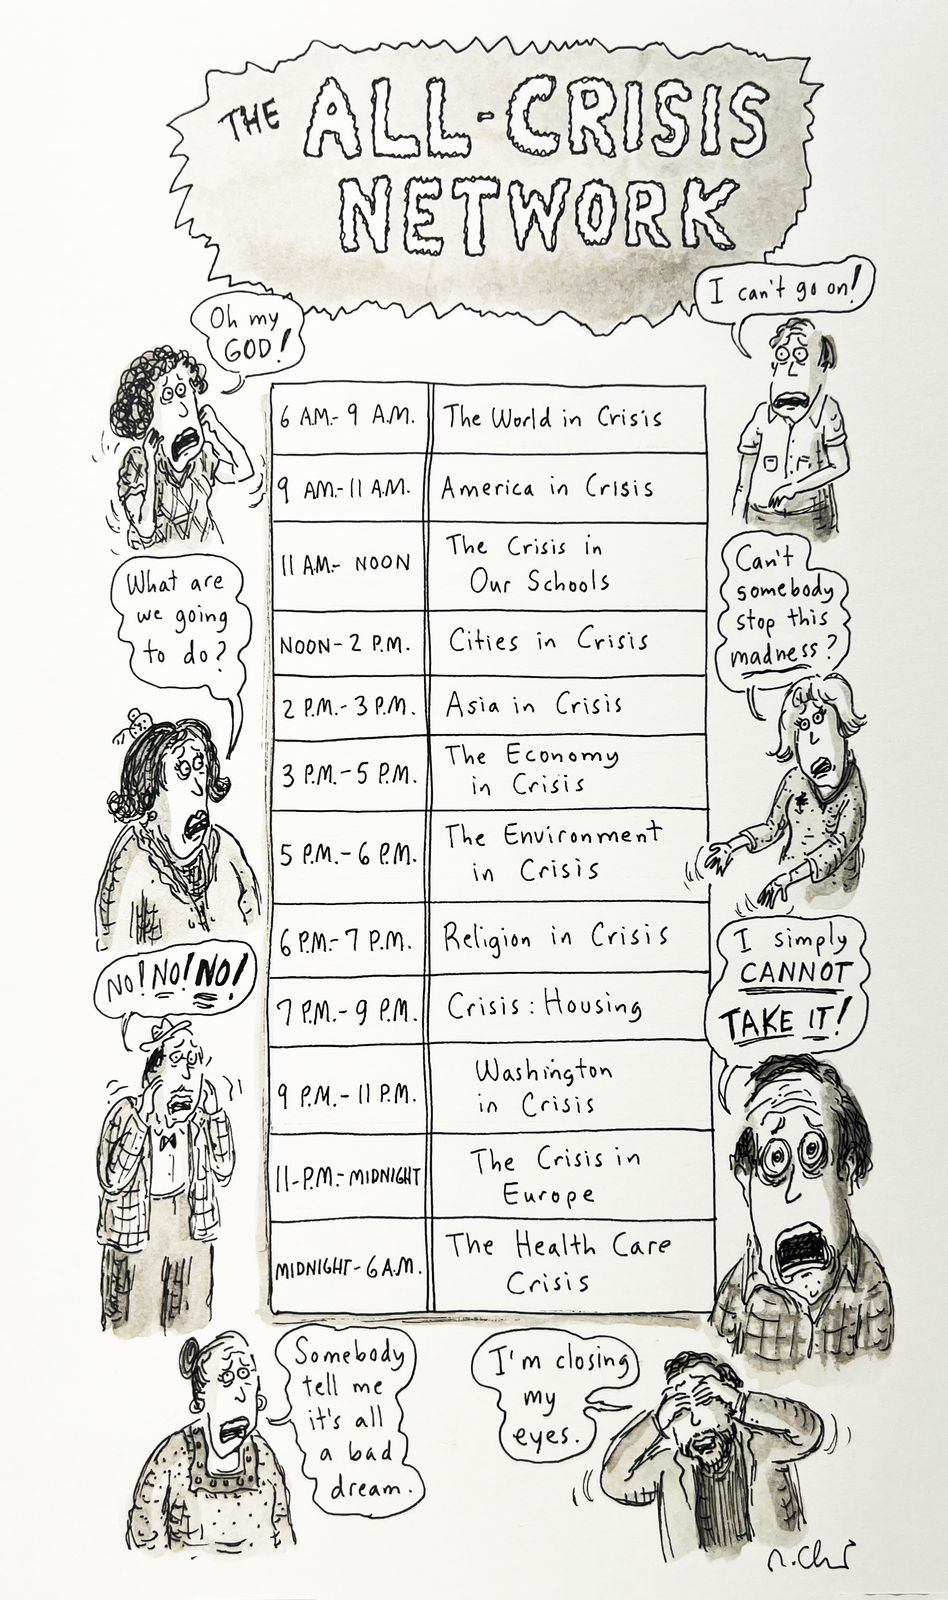 THE ALL-CRISIS
NETWORK
I can't go on!
Oh my
GOD!
6 A.M.- 9 A.M. The World in Crisis
9 AM.-11 A.M. America in Crisis
11 A.M.- NOON The Crisis in
Our Schools
NOON-2 P.M. Cities in Crisis
2 P.M.-3 P.M. Asia in Crisis
3 P.M.-5 P.M. The Economy
in Crisis
5 P.M.-6 P.M. The Environment
in Crisis
6 P.M.-7 P.M. Religion in Crisis
7 P.M.-9 P.M. Crisis: Housing
9 P.M.-11 P.M. Washington
in Crisis
11-P.M.-MIDNIGHT The Crisis in
Europe
MIDNIGHT-6 A.M. The Health Care
Crisis
What are
we going
to do?
Can't
somebody
stop this
madness?
NO! NO! NO!
I simply
CANNOT
TAKE IT!
Somebody
tell me
it's all
a bad
dream.
I'm closing
my
eyes.